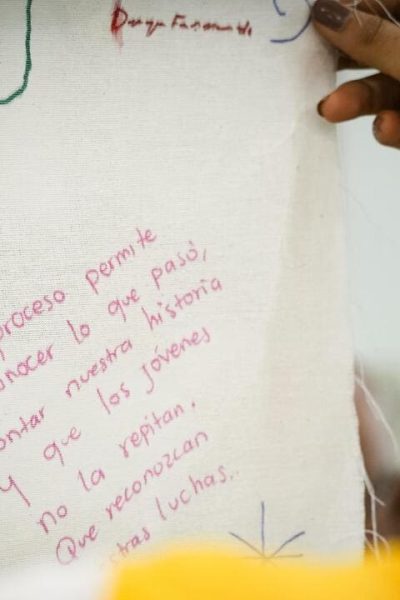 proceso permite
nocer lo que pasó,
ontar nuestra historia
y que los jóvenes
no la repitan.
Que reconozcan
stras luchas..